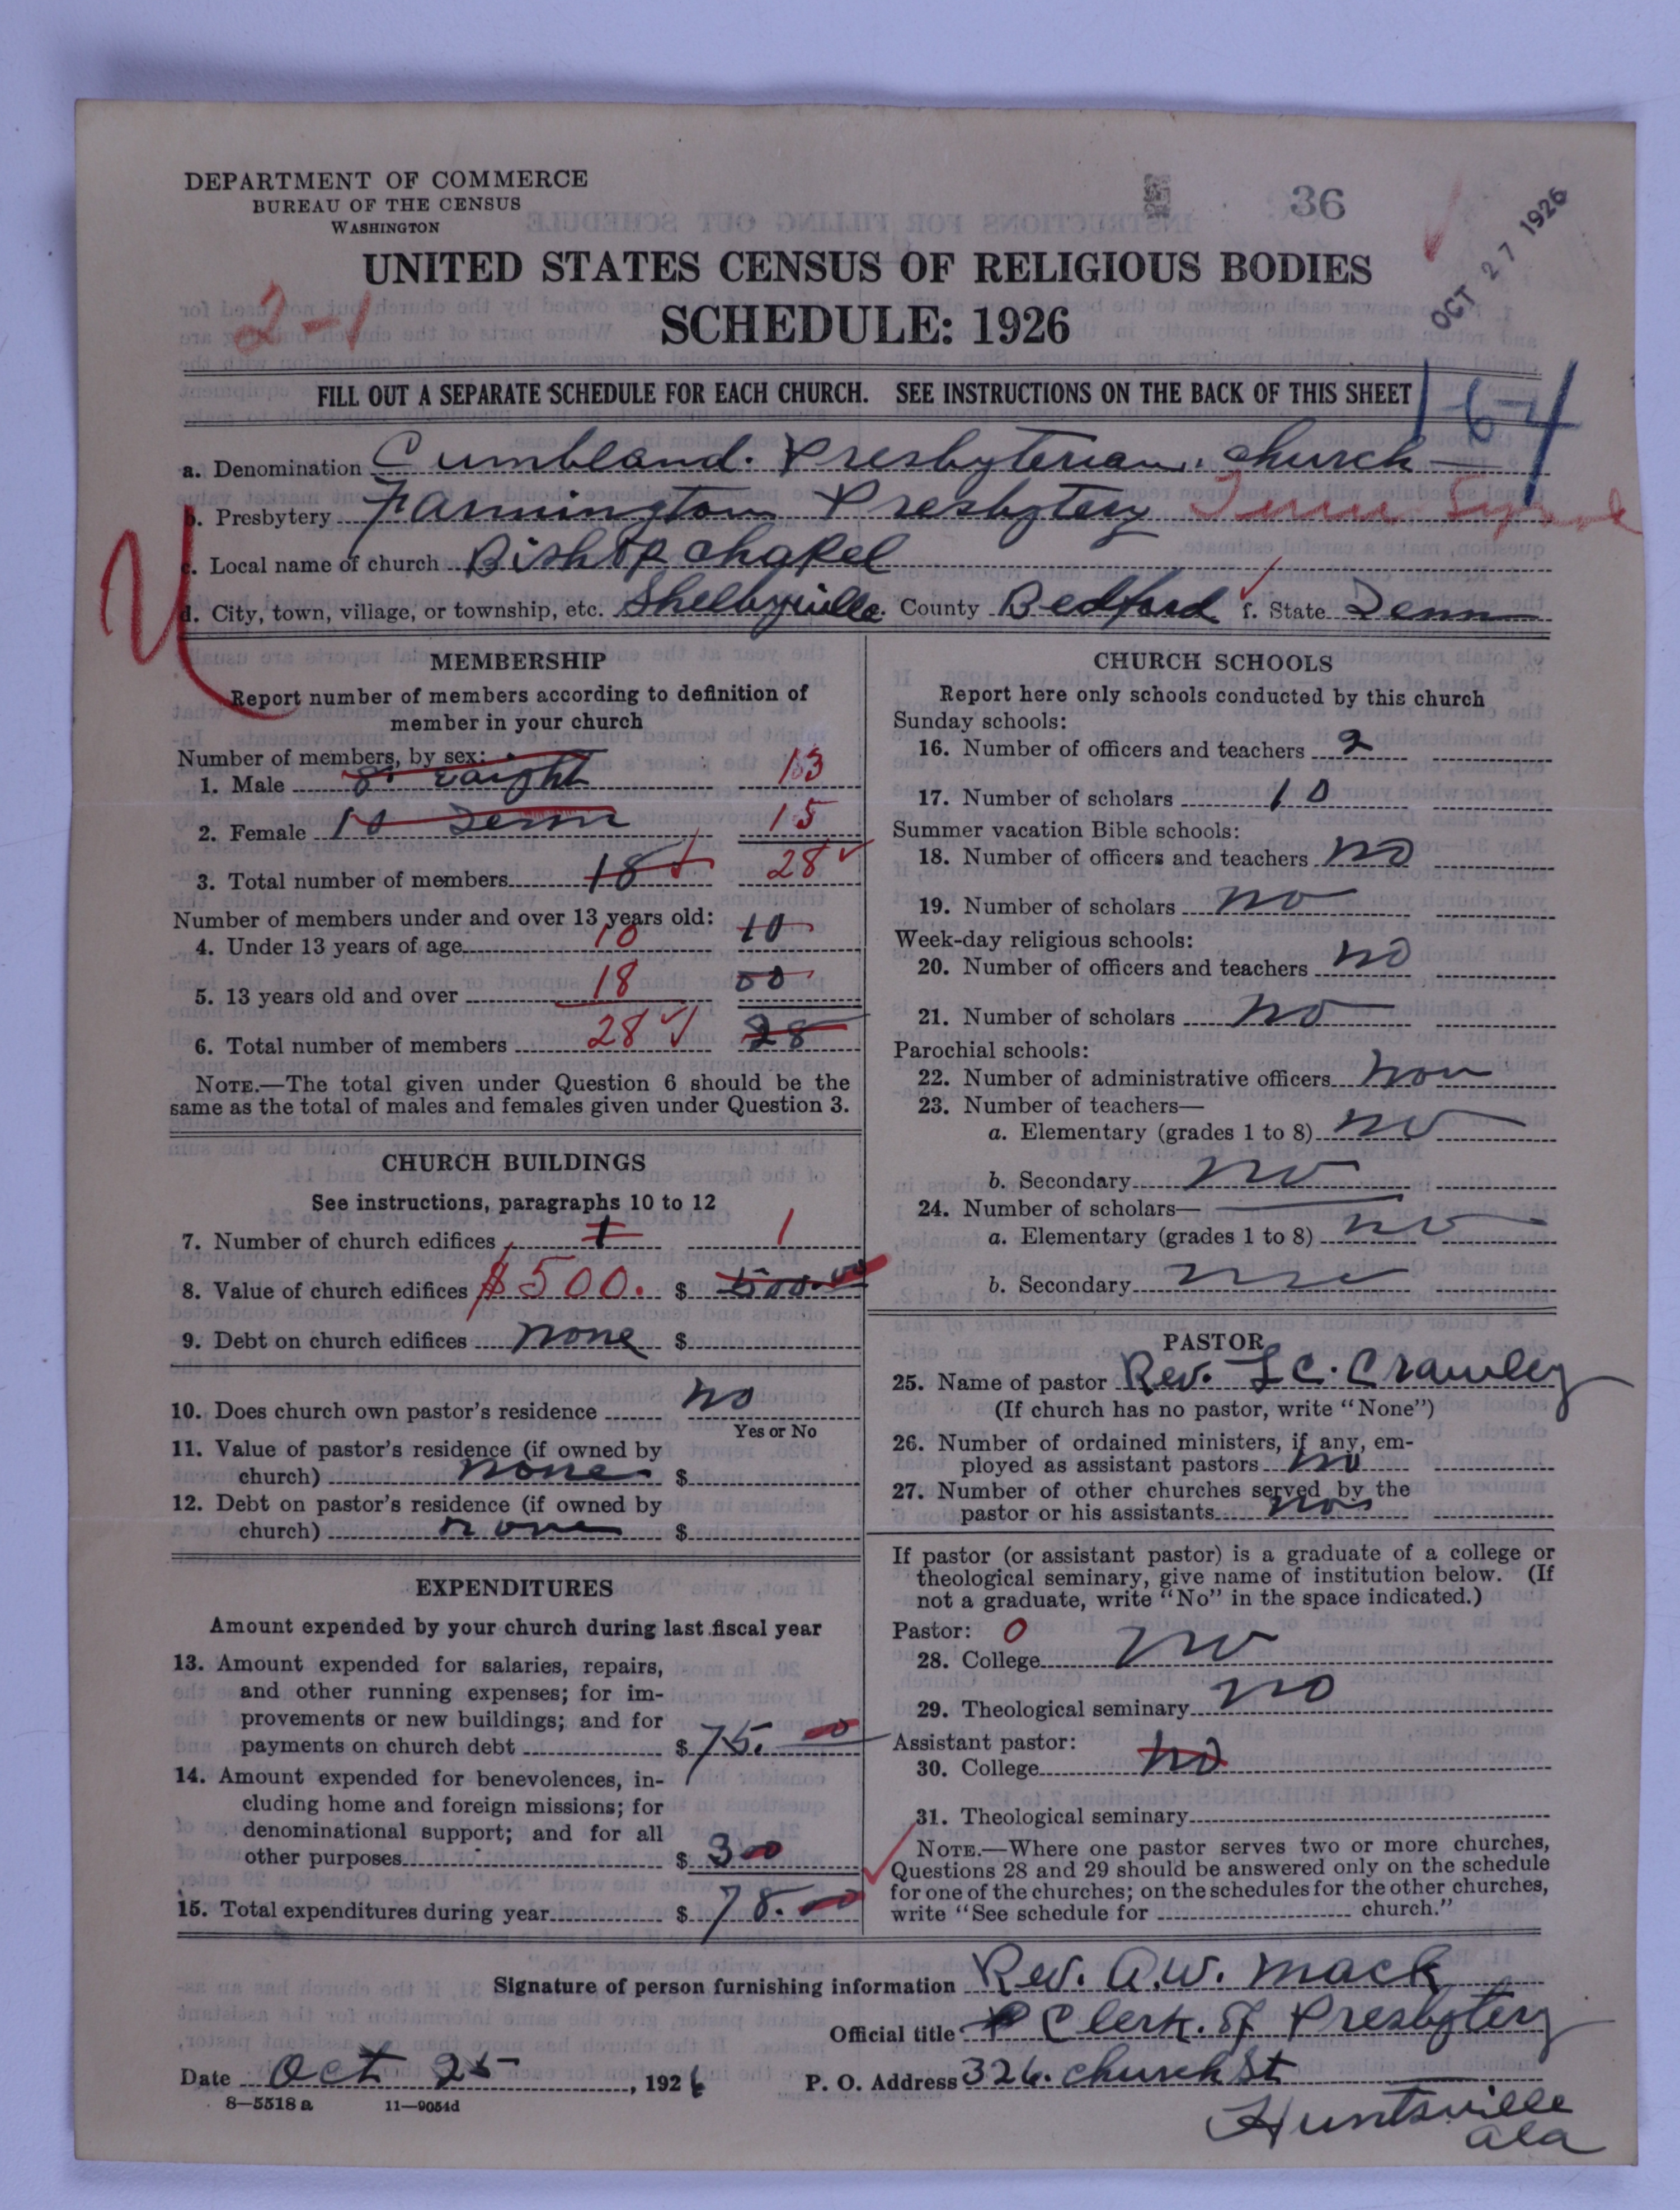 DEPARTMENT OF COMMERCE
BUREAU OF THE CENSUS
WASHINGTON
36
OCT 27 1926
UNITED STATES CENSUS OF RELIGIOUS BODIES
2-1
SCHEDULE: 1926
FILL OUT A SEPARATE SCHEDULE FOR EACH CHURCH. SEE INSTRUCTIONS ON THE BACK OF THIS SHEET
1-64
a. Denomination Cumbland. Presbyterian. church
b. Presbytery Farmington Presbytery Tenn Synod
c. Local name of church Bishop chapel
d. City, town, village, or township, etc. Shelbyville e. County Bedford f. State Tenn
MEMBERSHIP
Report number of members according to definition of
member in your church
Number of members, by sex:
1. Male 8. eaight 13
2. Female 10 Tenn 15
3. Total number of members 18 28
Number of members under and over 13 years old:
4. Under 13 years of age 10 10
5. 13 years old and over 18 00
6. Total number of members 28 28
NOTE.—The total given under Question 6 should be the
same as the total of males and females given under Question 3.
CHURCH BUILDINGS
See instructions, paragraphs 10 to 12
7. Number of church edifices 1 1
8. Value of church edifices $500. $ 500.00
9. Debt on church edifices none $
10. Does church own pastor's residence no
Yes or No
11. Value of pastor's residence (if owned by
church) none $
12. Debt on pastor's residence (if owned by
church) none $
EXPENDITURES
Amount expended by your church during last fiscal year
13. Amount expended for salaries, repairs,
and other running expenses; for im-
provements or new buildings; and for
payments on church debt $ 75. 00
14. Amount expended for benevolences, in-
cluding home and foreign missions; for
denominational support; and for all
other purposes $ 3 00
15. Total expenditures during year $ 78. 00
CHURCH SCHOOLS
Report here only schools conducted by this church
Sunday schools:
16. Number of officers and teachers 2
17. Number of scholars 10
Summer vacation Bible schools:
18. Number of officers and teachers no
19. Number of scholars no
Week-day religious schools:
20. Number of officers and teachers no
21. Number of scholars no
Parochial schools:
22. Number of administrative officers non
23. Number of teachers—
a. Elementary (grades 1 to 8) no
b. Secondary no
24. Number of scholars—
a. Elementary (grades 1 to 8) no
b. Secondary
PASTOR
25. Name of pastor Rev. L C. Crawley
(If church has no pastor, write "None")
26. Number of ordained ministers, if any, em-
ployed as assistant pastors no
27. Number of other churches served by the
pastor or his assistants
If pastor (or assistant pastor) is a graduate of a college or
theological seminary, give name of institution below. (If
not a graduate, write "No" in the space indicated.)
Pastor: 0
28. College no
29. Theological seminary no
Assistant pastor:
30. College no
31. Theological seminary
NOTE.—Where one pastor serves two or more churches,
Questions 28 and 29 should be answered only on the schedule
for one of the churches; on the schedules for the other churches,
write "See schedule for church."
Signature of person furnishing information Rev. A. W. Mack
Official title Clerk. of Presbytery
Date Oct 25, 1926 P. O. Address 326. church St
8—5518 a 11—9054d
Huntsville
Ala